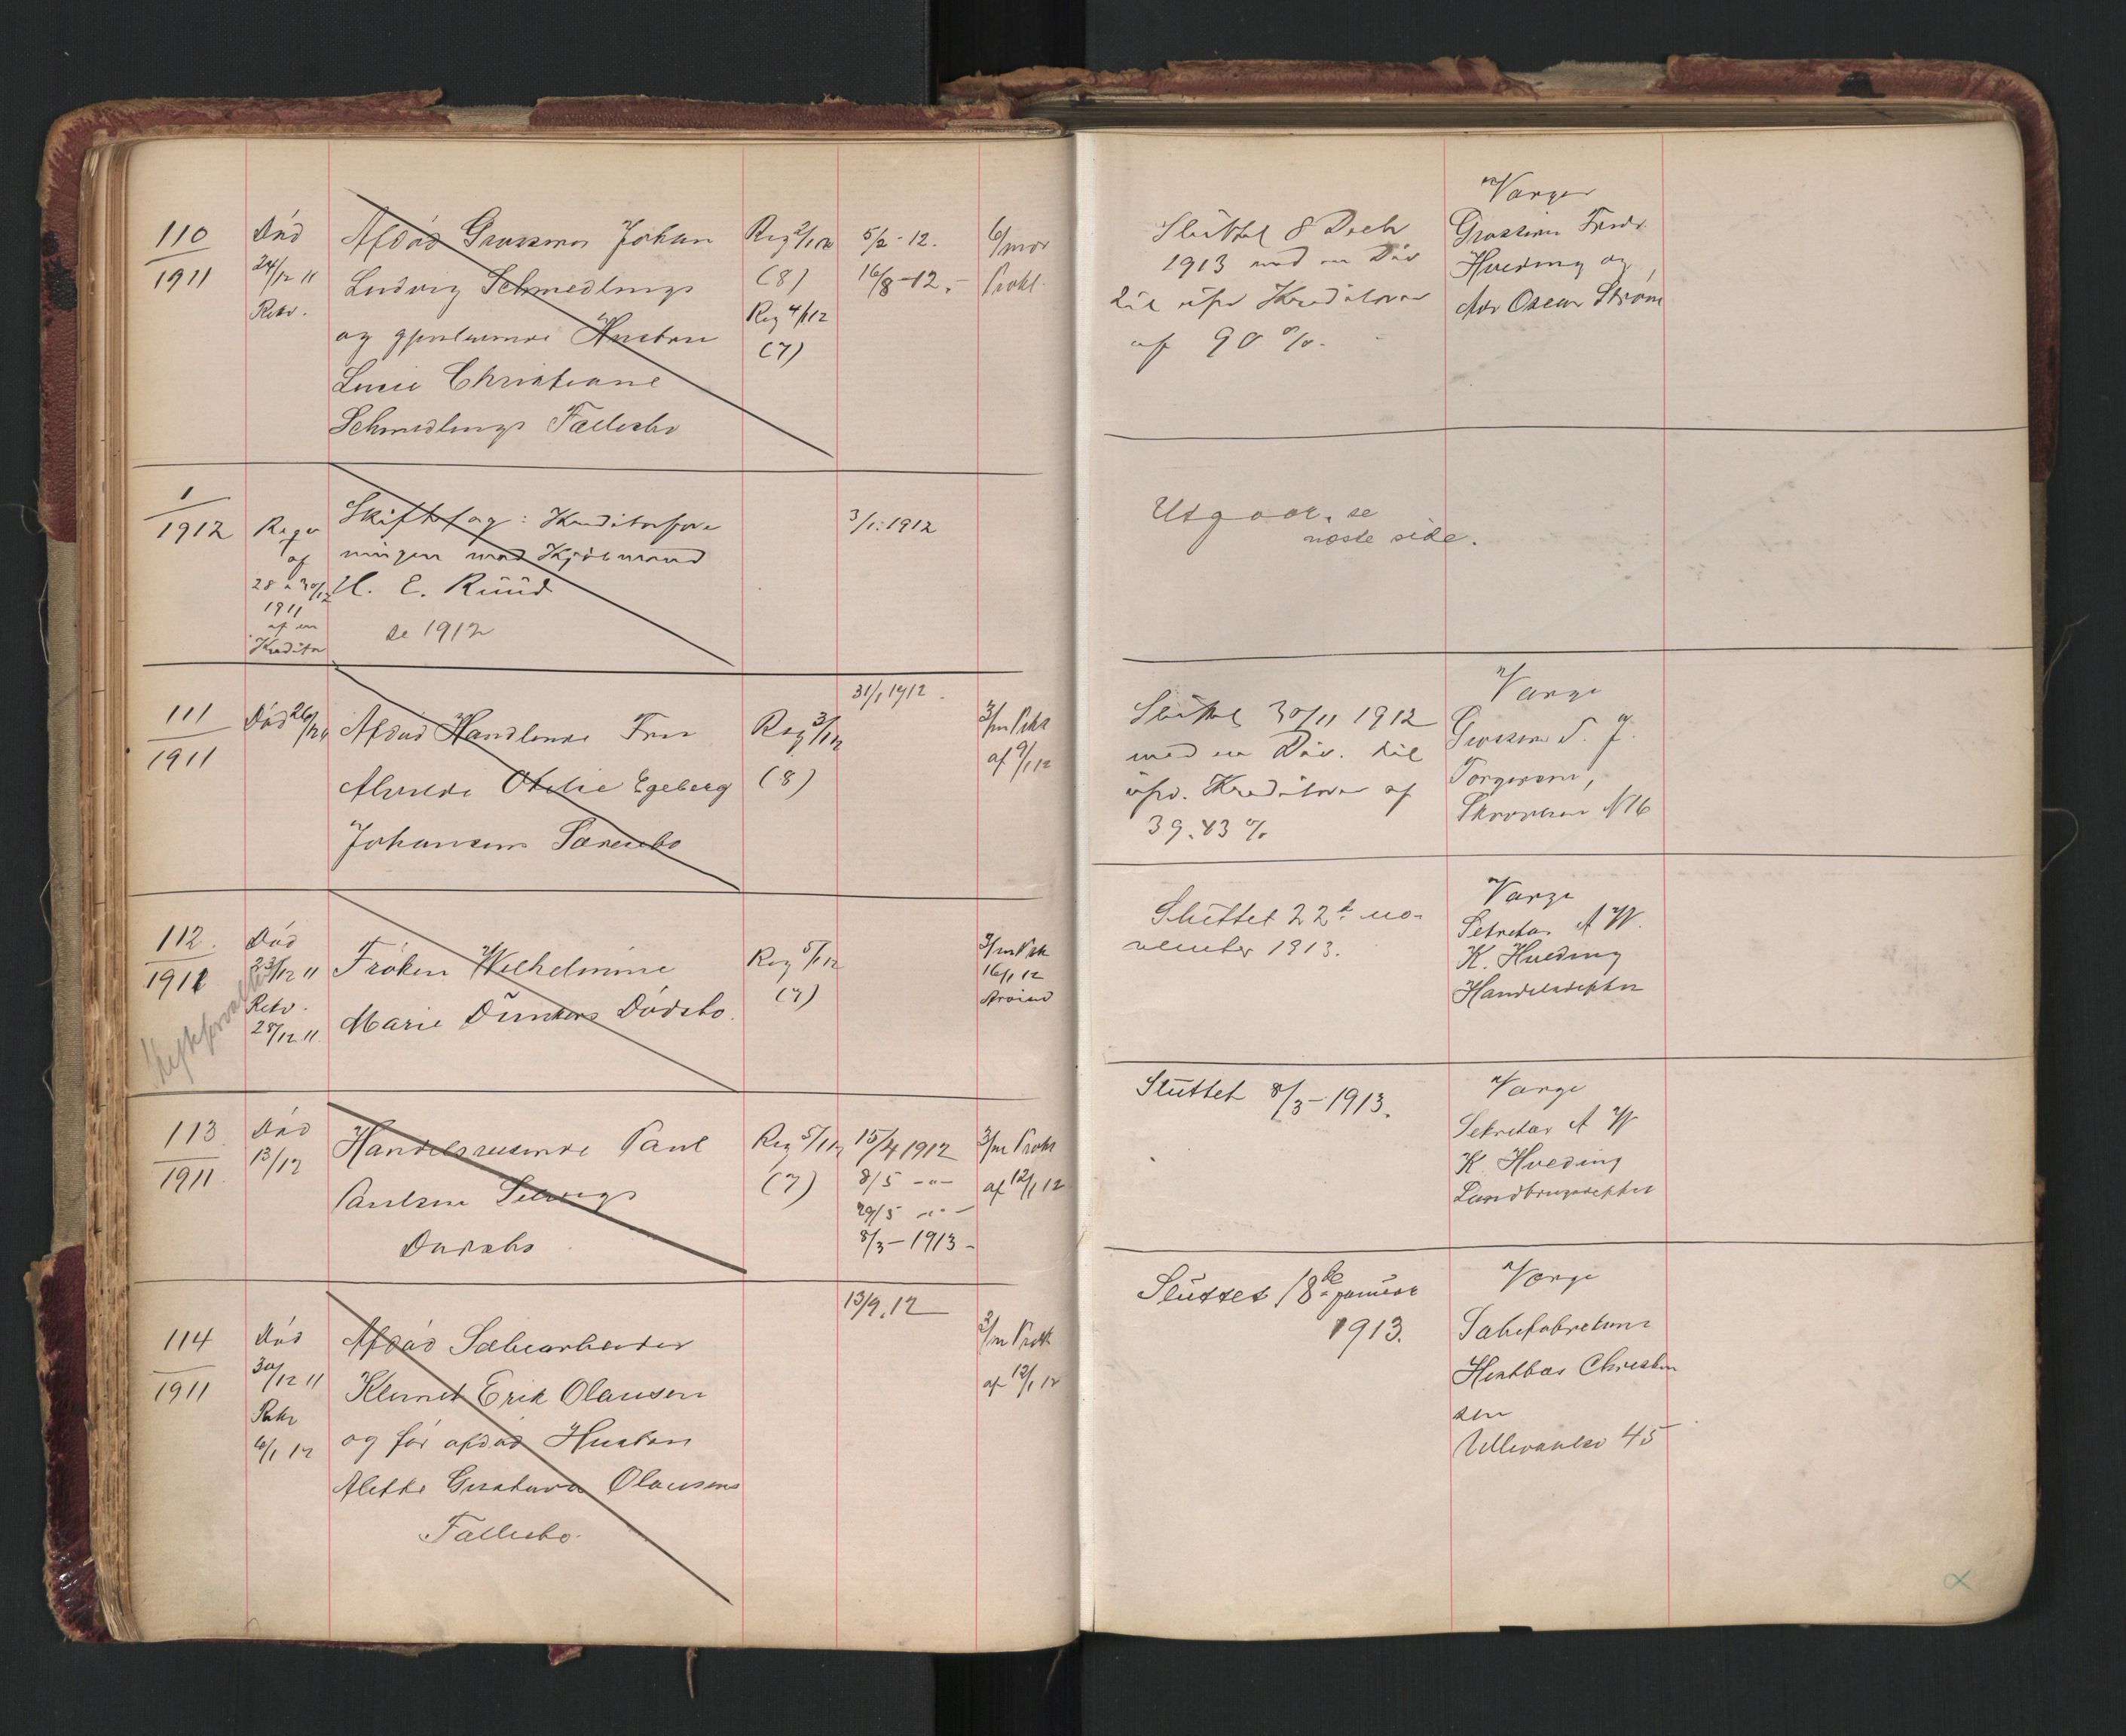 110
1911
Död
24/12 11
Retv.
Afdöd Grosserer Johan
Ludvig Schmedlings
og gjenlevende Hustru
Lucie Christiane
Schmedlings Fællesbo
Reg 2/1 12
(8)
Reg 4/1 12
(7)
5/2 - 12.
16/8 - 12.
Prokl.
Sluttet 8 Decb
1913 med en Div
til upr Kreditorer
af 90 %.
Værger
Grosserer Fredr
Hveding og
Adv Oscar Strøm
1
1912
af
28 a 30/12
1911
af en
Kreditor
Skiftesag: Kreditorfore
ningen mod Kjøbmand
H. E. Ruud
se 1912
3/1. 1912
Utgaar, se
næste side.
111
1911
Död 26/12 11
Afdöd Handlende Fru
Otilie Egeberg
Johansens Særeiebo
Reg 3/1 12
(8)
31/1 1912.
3/m Pkl
af 9/1 12
Sluttet 30/11 1912
med en Div. til
upr. Kreditorer af
39.83 %
Værge
Grosserer
Torgersen,
N 16
112.
1911
Skifteforvalter
Död
23/12 11
Retv.
28/12 11.
Fröken Wilhelmine
Marie Dunkers Dödsbo.
Reg 5/1 12
(7)
16/1 12
Sluttet 22d no-
vember 1913.
Værge
Sekretær A W.
K. Hveding
Handelsdepter
113.
1911.
Död
13/12
Handelsreisende Paul
Paulsen
Dødsbo
Reg 5/1 12
(7)
15/4 1912
8/5 -"-
29/5 -"-
8/3 - 1913 -
3/m Prokl
af 12/1 12
Sluttet 8/3 - 1913.
Værge
Sekretær A W
K. Hveding
Landbrugsdeptet
114
1911
Död
30/12 11
Retv
6/1 12
Afdöd Sæbearbeider
Klemet Erik Olausen
og för afdöd Hustru
Alette Gustava Olausens
Fællesbo.
13/9. 12
3/m Prokl
af 12/1 12
Sluttet 18de januar
1913.
Værge
Christian
sen
Ullevaalsv 45